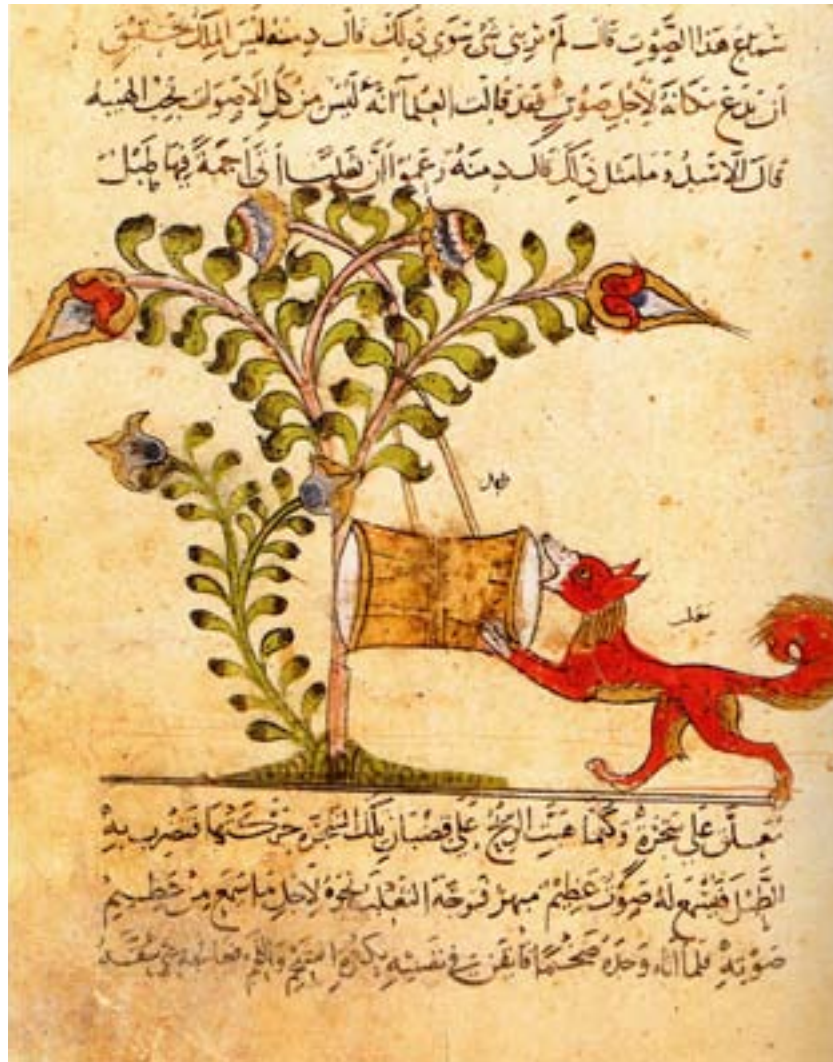 سماع هذا الصوت قال لم يربني شي سوى ذلك قال دمنه ليس الملك بحقيق
ان يدع مكانه لاجل صوت فقد قالت العلما انه ليس من كل الاصوات تجب الهيبه
قال الاسد وما مثل ذلك قال دمنه زعموا ان ثعلبا اتى اجمة فيها طبل
طبل
ثعلب
معلق على شجرة وكلما هبت الريح على قضبان تلك الشجره حركتها فتضرب به
الطبل فيسمع له صوت عظيم فتوجه الثعلب نحوه لاجل ما سمع من عظيم
صوته فلما اتاه وجده ضخما فايقن في نفسه بكثرة الشحم واللحم فعالجه حتى شقه